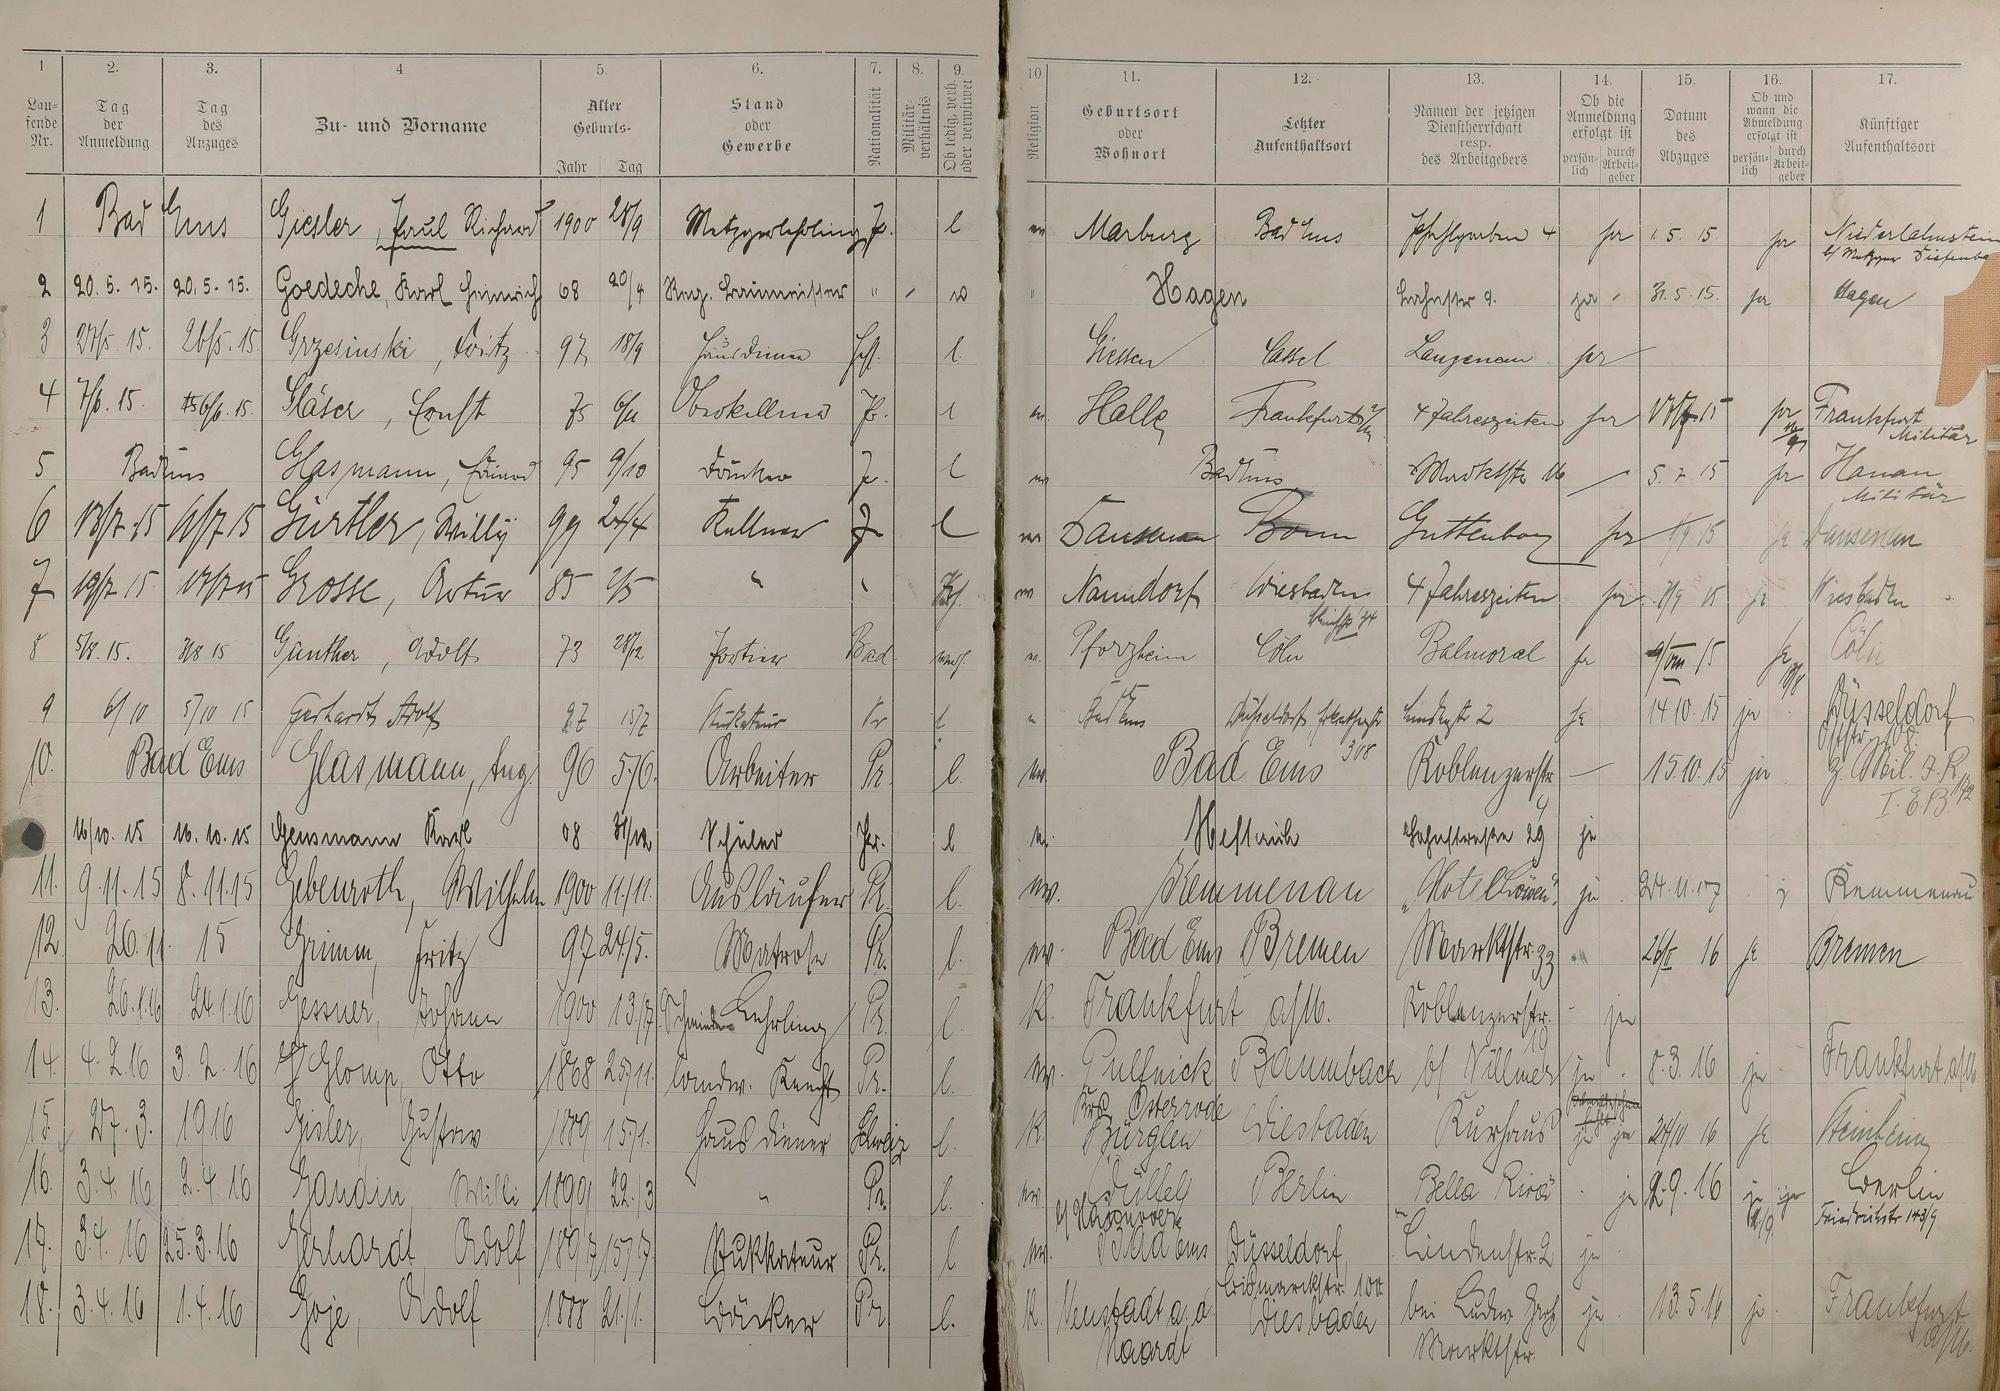 1 2. 3. 4 5. 6. 7. 8. 9. 10 11. 12. 13. 14. 15. 16. 17.
Lau-
fende
Nr.
Tag
der
Anmeldung
Tag
des
Anzuges
Zu- und Vorname
Alter
Geburts-
Jahr Tag
Stand
oder
Gewerbe
Nationalität
Militär-
verhältnis
Ob ledig, verh.
oder verwitwet
Religion
Geburtsort
oder
Wohnort
Letzter
Aufenthaltsort
Namen der jetzigen
Dienstherrschaft
resp.
des Arbeitgebers
Ob die
Anmeldung
erfolgt ist
persön-
lich
durch
Arbeit-
geber
Datum
des
Abzuges
Ob und
wann die
Abmeldung
erfolgt ist
persön-
lich
durch
Arbeit-
geber
Künftiger
Aufenthaltsort
1 Bad Ems Giesler, Paul Richard 1900 28/9 Metzgerlehrling Pr. l ev Marburg Bad Ems 4 ja 1.5.15. ja Niederlahnstein
b/ Metzger
2 20.5.15. 20.5.15. Goedecke, Karl Heinrich 68 20/4 Reg. Baumeister " w " Hagen 9. ja 31.5.15. ja Hagen
3 27/5.15. 26/5.15 Grzesinski, Fritz 97 18/9 Hausdiener l. Giessen Cassel Langenau ja
4 7/6.15. 6/6.15. Gläser, Ernst 75 6/11 Oberkellner Pr. l ev. Halle Frankfurt a/M 4 Jahreszeiten ja 15 ja Frankfurt
Militär
5 Bad Ems Glasmann, Eduard 95 9/10 Drucker Pr. l ev Bad Ems Marktstr 16 5.7.15 ja Hanau
Militär
6 13/7.15 11/7 15 Gürtler, Willy 99 24/4 Kellner Pr l ev Dausenau Bonn Guttenberg ja 1/9 15 ja Dausenau
7 19/7 15 17/7 15 Grosse, Artur 85 2/5 " " ev Nanndorf Wiesbaden 4 Jahreszeiten ja 15 ja Wiesbaden
8 5/8.15. 3/8 15 Günther, Adolf 73 28/12 Portier Bad. verh. ev. Pforzheim Cöln Balmoral ja 9/VIII 15 ja Cöln
9 6/10 5/10 15 Gerhardt Adolf 97 15/7 Stukateur Pr l Bad Ems Düsseldorf, Lindenstr 2 ja 14 10.15 ja Düsseldorf
308
10. Bad Ems Glasmann, Aug. 96 5/6. Arbeiter Pr. l. ev. Bad Ems Koblenzerstr 15.10.15 ja z. Mil. I.R.
4
I.E.B.
16/10.15 16.10.15 Gensmann Karl 08 31/12 Schüler Pr. l ev. Heftrich 29 ja
11. 9.11.15 8.11.15 Gebenroth, Wilhelm 1900 11./11. Ausläufer Pr. l. ev. Kemmenau „Hotel Löwen". ja 24.11.17 j Kemmenau
12. 26.11. 15 Grimm, Fritz 97 24/5. Matrose Pr. l. ev. Bad Ems Bremen Marktstr. 33 26/II 16 ja Bremen
13. 26.1.16 24.1.16 Gessner, Johann 1900 13./7. Schmiede-Lehrling Pr. l. K. Frankfurt a/M. Koblenzerstr. - ja
19
14. 4.2.16 3.2.16 Glomp, Otto 1868 25/11. landw. Knecht Pr. l. ev. Pulfnick Baumbach b/ Villmer ja 8.3.16 ja Frankfurt a/M
Krs. Osterrode
15. 27.3. 1916 Gisler, Gustav 1889 15./1. Haus diener Schweiz l. K. Bürglen Wiesbaden Kurhaus ja 24/10 16 ja
16. 3.4.16 2.4.16 Gaudin Willi 1890 22./3 " Pr. l. ev. Berlin Bella Riva ja 2.9.16 ja Berlin
b/ Hannover Friedrichstr 143/9
17. 3.4.16 25.3.16 Gerhardt Adolf 1897 15/7 Stukkateur Pr. l ev. Bad Ems Düsseldorf, Lindenstr. 2 ja
Bismarckstr. 100
18. 3.4.16 1.4.16 Goje, Adolf 1888 21./1. Bäcker Pr l. K. Neustadt a.d Wiesbaden bei Ludw. ja 13.5.16 ja Frankfurt
Haardt Marktstr. a/M.